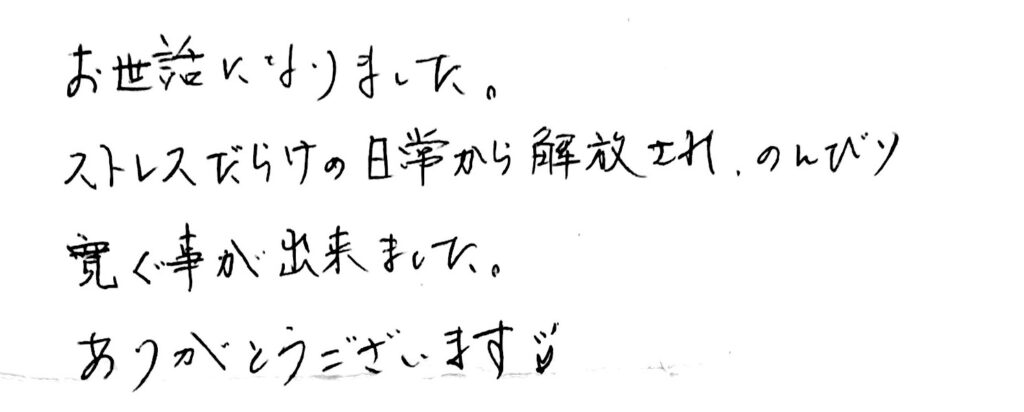 お世話になりました。
ストレスだらけの日常から解放され、のんびり
寛ぐ事が出来ました。
ありがとうございます